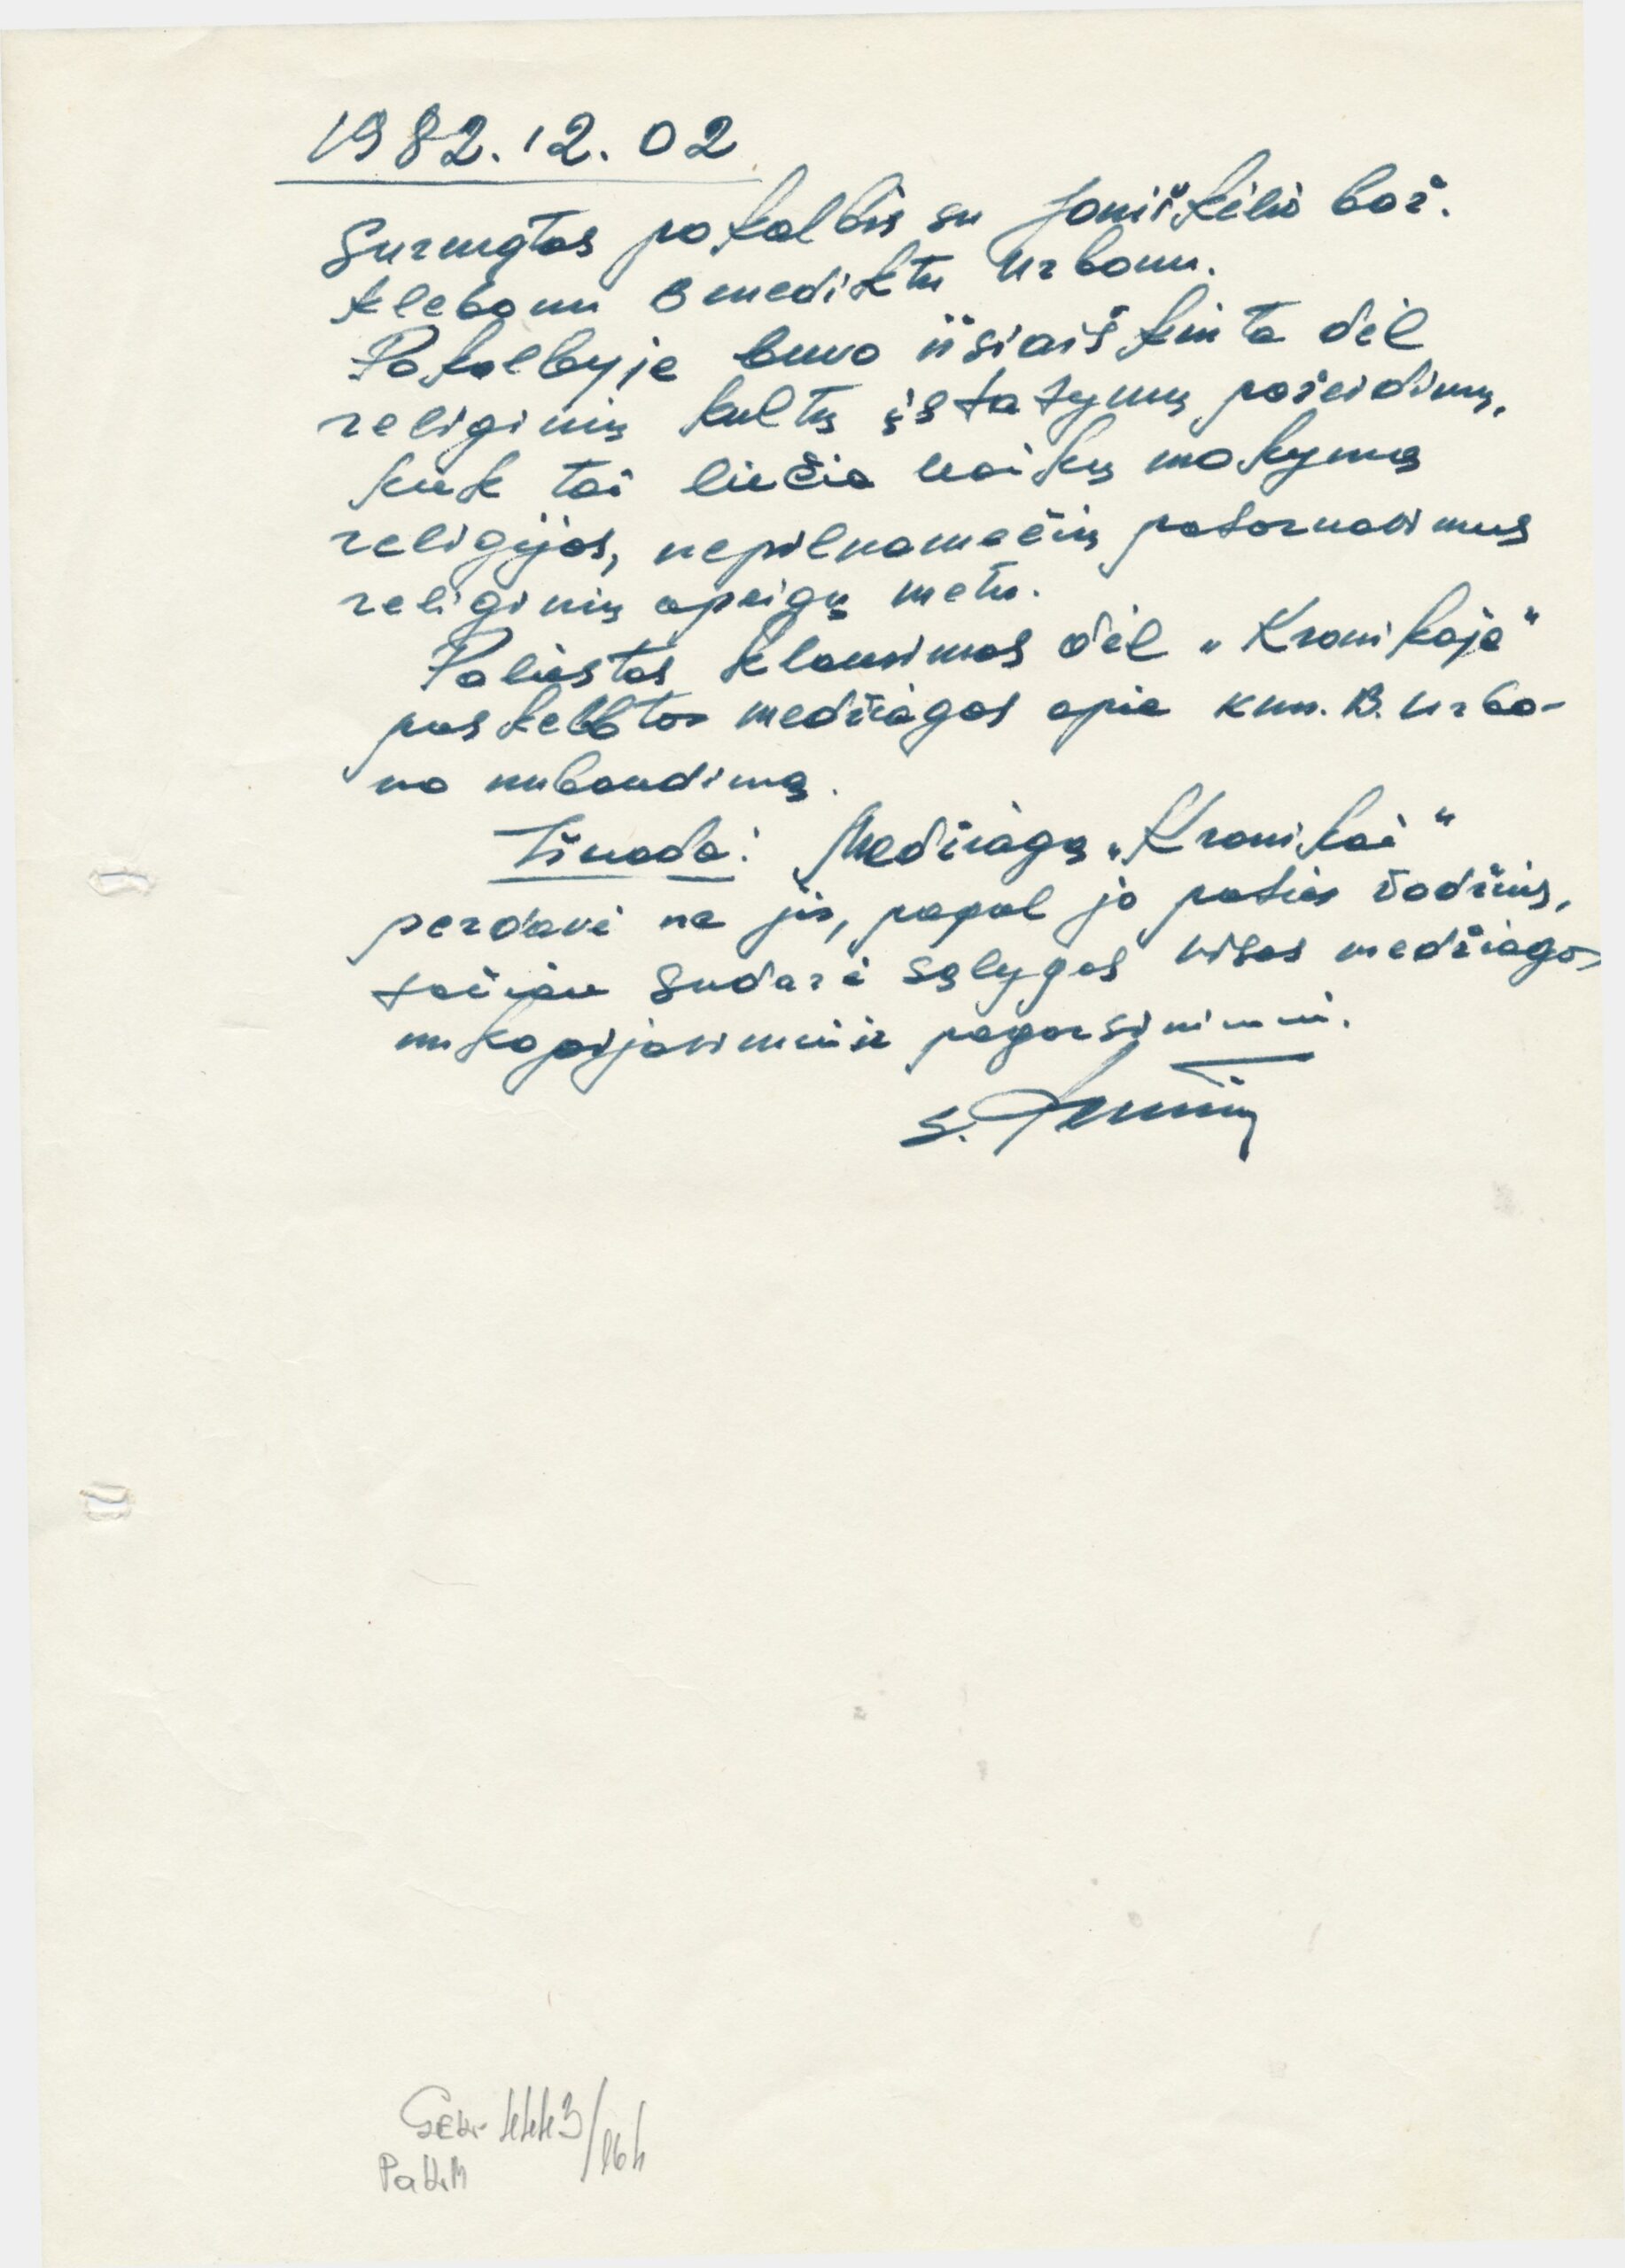 1982.12.02
Surengtas pokalbis su Joniškėlio baž.
klebonu Benediktu Urbonu.
Pokalbyje buvo išsiaiškinta dėl
religinių kultų įstatymų pažeidimų,
kiek tai liečia vaikų mokymą
religijos, nepilnamečių patarnavimus
religinių apeigų metu.
Paliestas klausimas dėl „Kronikoje"
paskelbtos medžiagos apie kun. B. Urbo-
no nubaudimą.
Išvada: Medžiagą „Kronikai"
perdavė ne jis, pagal jo paties žodžius,
tačiau sudarė sąlygas visos medžiagos
nukopijavimui ir pagarsinimui.
S.
GEK-
PaKM